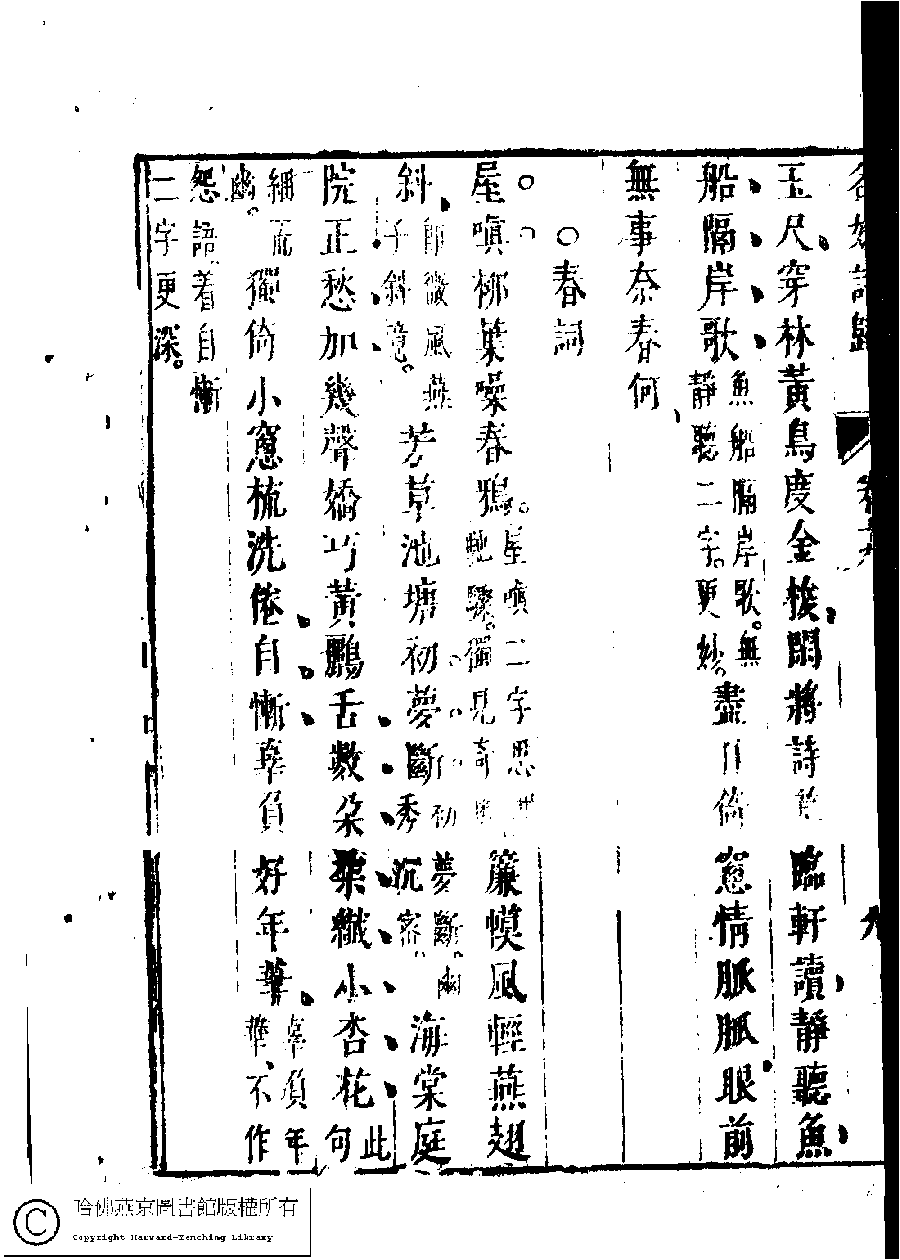 名媛詩歸 卷十九 九
玉尺穿林黃鳥度金梭悶將詩臨軒讀靜聽魚
船隔岸歌魚船隔岸歌無靜聽二字更妙盡日倚窻情脈脈眼前
無事奈春何
○春詞
屋嗔柳葉噪春鴉屋嗔二字思艷驟獨見奇簾幙風輕燕翅
斜即微風燕子斜意芳草池塘初夢斷初夢斷幽秀沉密海棠庭
院正愁加幾聲嬌巧黃鸝舌數朵柔纖小杏花此句
細而幽獨倚小窻梳洗倦自慚辜負好年華辜負年華不作
怨語着自慚
二字更深
哈佛燕京圖書館版權所有
Copyright Harvard-Yenching Library